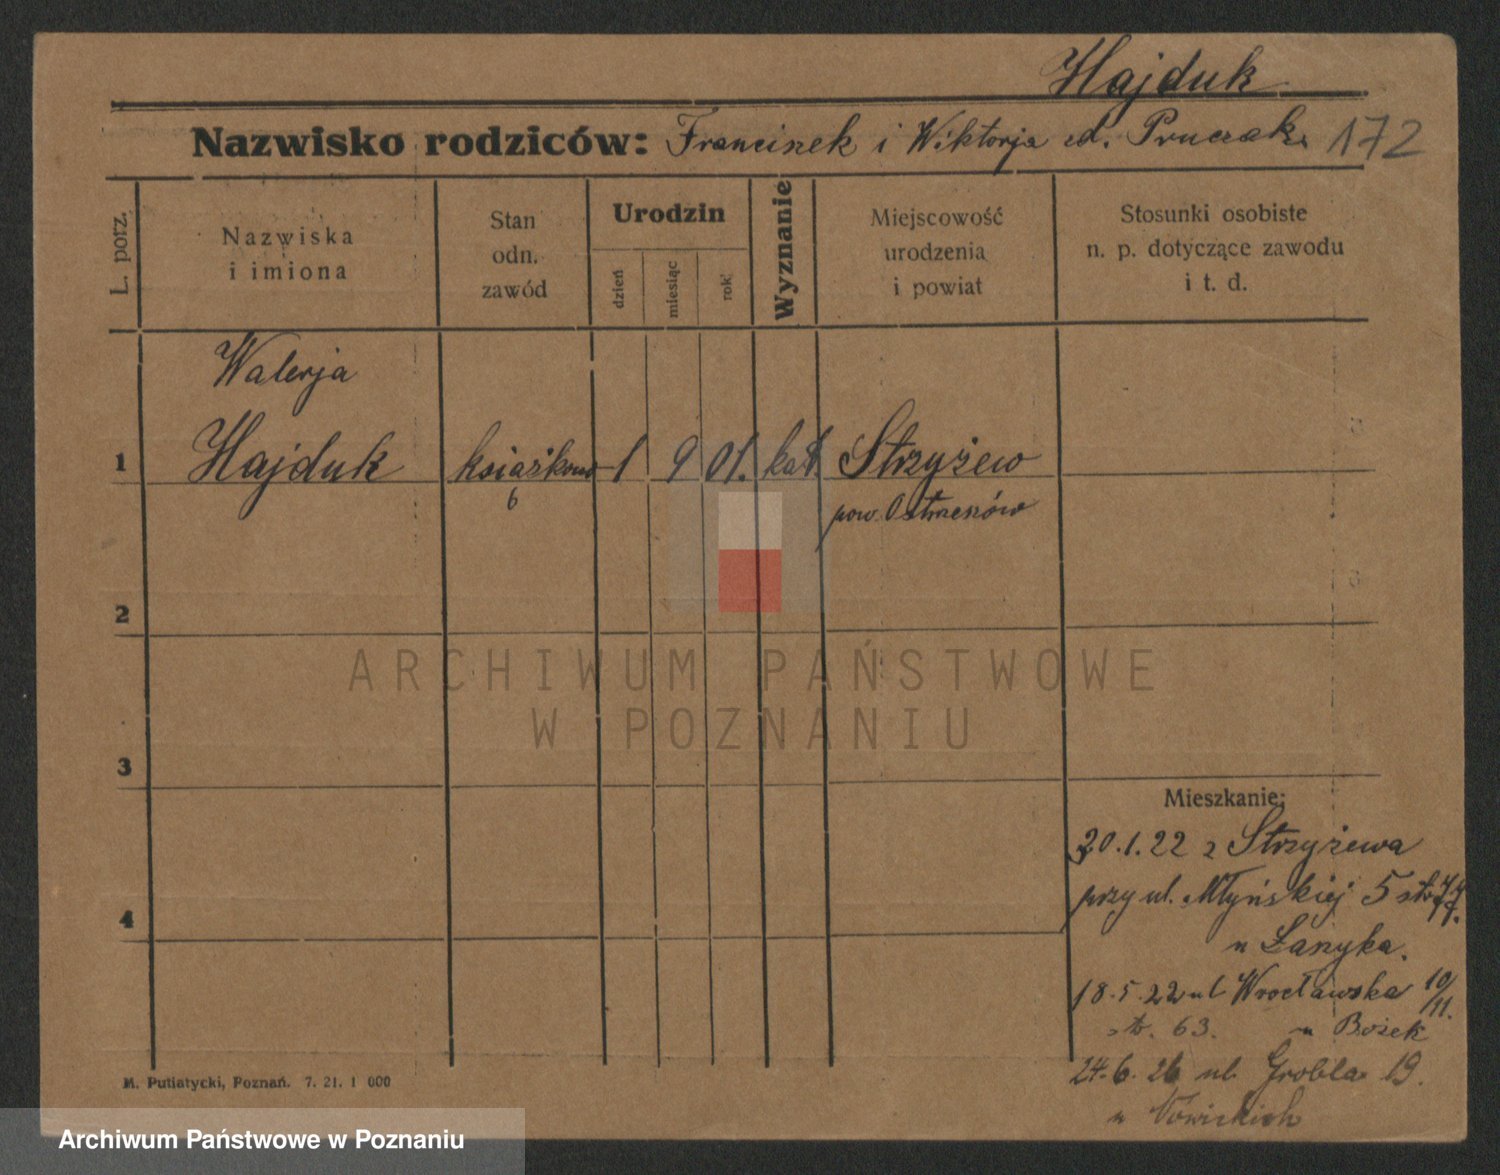 Hajduk
Nazwisko rodziców: Franciszek i Wiktorja z d. Pruczak 172
L. porz.
Nazwiska
i imiona
Stan
odn.
zawód
Urodzin
dzień
miesiąc
rok
Wyznanie
Miejscowość
urodzenia
i powiat
Stosunki osobiste
n. p. dotyczące zawodu
i t. d.
Walerja
1 Hajduk książkowa 1 9 01. kat. Strzyżew
pow. Ostrzeszów
2
3
4
ARCHIWUM PAŃSTWOWE
W POZNANIU
Mieszkanie:
20.1.22 z Strzyżewa
przy ul. Młyńskiej 5
u
18.5.22 ul Wrocławska 10/11.
str. 63. u Bożek
24.6.26 ul. Grobla 19.
u Nowickich
M. Putiatycki, Poznań. 7. 21. 1 000
Archiwum Państwowe w Poznaniu